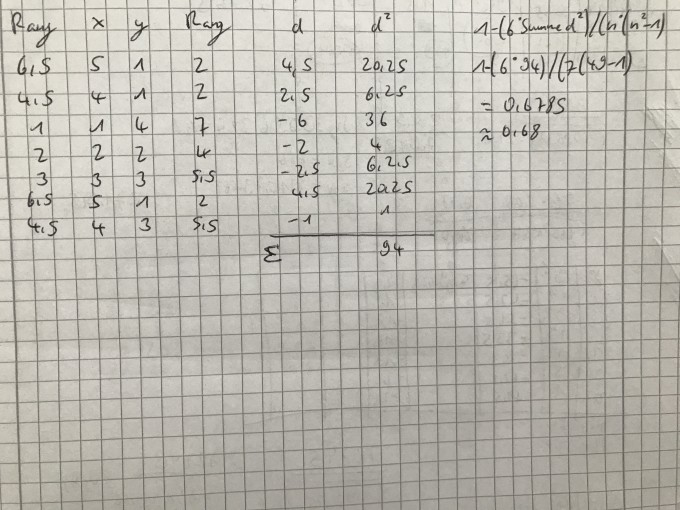 Rang x y Rang d d² 1-(6*Summe d²)/(n*(n²-1)
6,5 5 1 2 4,5 20,25 1-(6*94)/(7(49-1)
4,5 4 1 2 2,5 6,25 = 0,6785
1 1 4 7 -6 36 ≈ 0,68
2 2 2 4 -2 4
3 3 3 5,5 -2,5 6,2,5
6,5 5 1 2 4,5 20,25
4,5 4 3 5,5 -1 1
Σ 94